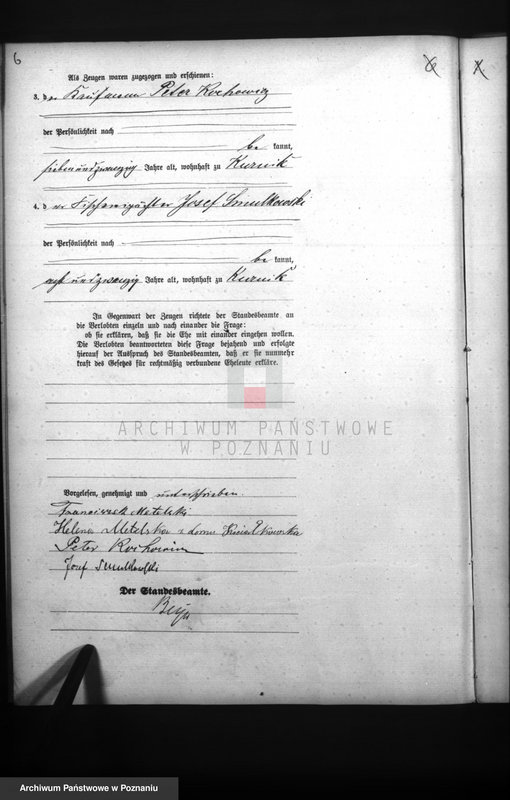 6
Als Zeugen waren zugezogen und erschienen:
3. der Kaufmann Peter Kochowicz
der Persönlichkeit nach
be kannt,
siebenundzwanzig Jahre alt, wohnhaft zu Kurnik
4. der Fischereipächter Josef Smulkowski
der Persönlichkeit nach
be kannt,
acht und zwanzig Jahre alt, wohnhaft zu Kurnik
In Gegenwart der Zeugen richtete der Standesbeamte an
die Verlobten einzeln und nach einander die Frage:
ob sie erklären, daß sie die Ehe mit einander eingehen wollen.
Die Verlobten beantworteten diese Frage bejahend und erfolgte
hierauf der Ausspruch des Standesbeamten, daß er sie nunmehr
kraft des Gesetzes für rechtmäßig verbundene Eheleute erkläre.
ARCHIWUM PAŃSTWOWE
W POZNANIU
Vorgelesen, genehmigt und unterschrieben.
Franciszek Metelski
Helena Metelska z domu
Peter Kochowicz
Josef Smulkowski
Der Standesbeamte.
Archiwum Państwowe w Poznaniu